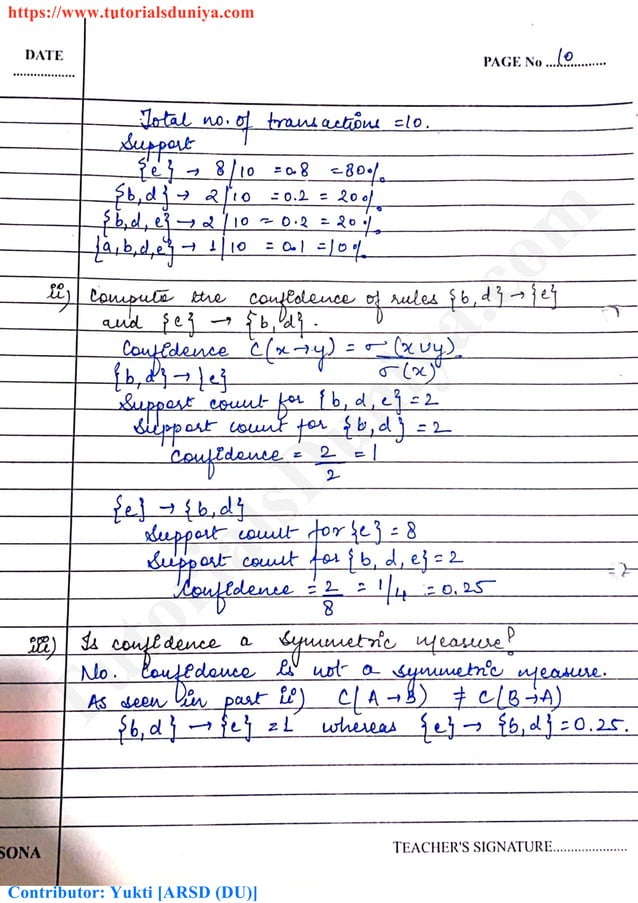 https://www.tutorialsduniya.com
DATE
PAGE No ...10............
Total no. of transactions = 10.
Support
{e} → 8/10 = 0.8 = 80%
{b, d} → 2/10 = 0.2 = 20%
{b, d, e} → 2/10 = 0.2 = 20%
{a, b, d, e} → 1/10 = 0.1 = 10%
ii) Compute the confidence of rules {b, d} → {e}
and {e} → {b, d}.
Confidence C(x→y) = σ(x∪y)
σ(x)
{b, d} → {e}
Support count for {b, d, e} = 2
Support count for {b, d} = 2
Confidence = 2/2 = 1
{e} → {b, d}
Support count for {e} = 8
Support count for {b, d, e} = 2
Confidence = 2/8 = 1/4 = 0.25
iii) Is confidence a symmetric measure?
No. Confidence is not a symmetric measure.
As seen in part ii) C(A→B) ≠ C(B→A)
{b, d} → {e} = 1 whereas {e} → {b, d} = 0.25.
SONA
TEACHER'S SIGNATURE.....................
Contributor: Yukti [ARSD (DU)]
TutorialsDuniya.com